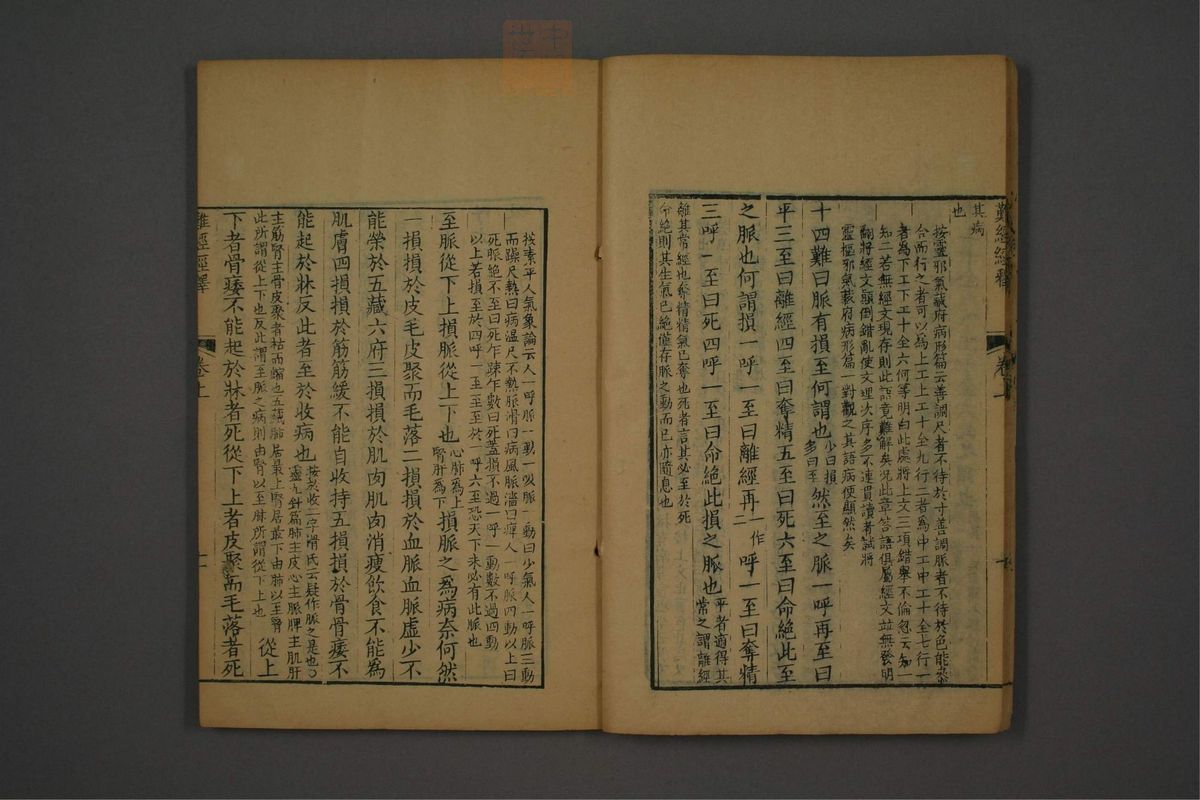 難經經釋
卷上
其病
也
按靈邪氣藏府病形篇云善調尺者不待於寸善調脈者不待於色能參
合而行之者可以為上工上工十全九行二者為中工中工十全七行一
者為下工下工十全六何等明白此處將上文三項錯舉不倫忽云知一
知二若無經文現存則此語竟難解矣況此章答語俱屬經文並無發明
翻將經文顛倒錯亂使文理次序多不連貫讀者試將
靈樞邪氣藏府病形篇一對觀之其語病便顯然矣
十四難曰脈有損至何謂也少曰損多曰至然至之脈一呼再至曰
平三至曰離經四至曰奪精五至曰死六至曰命絕此至
之脈也何謂損一呼一至曰離經再一作二呼一至曰奪精
三呼一至曰死四呼一至曰命絕此損之脈也平者適得其常之謂離經
離其常經也奪精精氣已奪也死者言其必至於死
命絕則其生氣已絕僅存脈之動而已亦隨息也
按素平人氣象論云人一呼脈一動一吸脈一動曰少氣人一呼脈三動
而躁尺熱曰病溫尺不熱脈滑曰病風脈濇曰痺人一呼脈四動以上曰
死脈絕不至曰死乍疎乍數曰死蓋損不過一呼一動數不過四動
以上若損至於四呼一至至於一呼六至恐天下未必有此脈也
至脈從下上損脈從上下也心肺為上腎肝為下損脈之為病奈何然
一損損於皮毛皮聚而毛落二損損於血脈血脈虛少不
能榮於五藏六府三損損於肌肉肌肉消瘦飲食不能為
肌膚四損損於筋筋緩不能自收持五損損於骨骨痿不
能起於牀反此者至於收病也按於收二字滑氏云疑作脈之是也○靈九針篇肺主皮心主脈脾主肌肝
主筋腎主骨皮聚者枯而縮也五藏肺居最上腎居最下由肺以至腎
此所謂從上下也反此謂至脈之病則由腎以至肺所謂從下上也從上
下者骨痿不能起於牀者死從下上者皮聚而毛落者死
難經經釋
卷上
十一